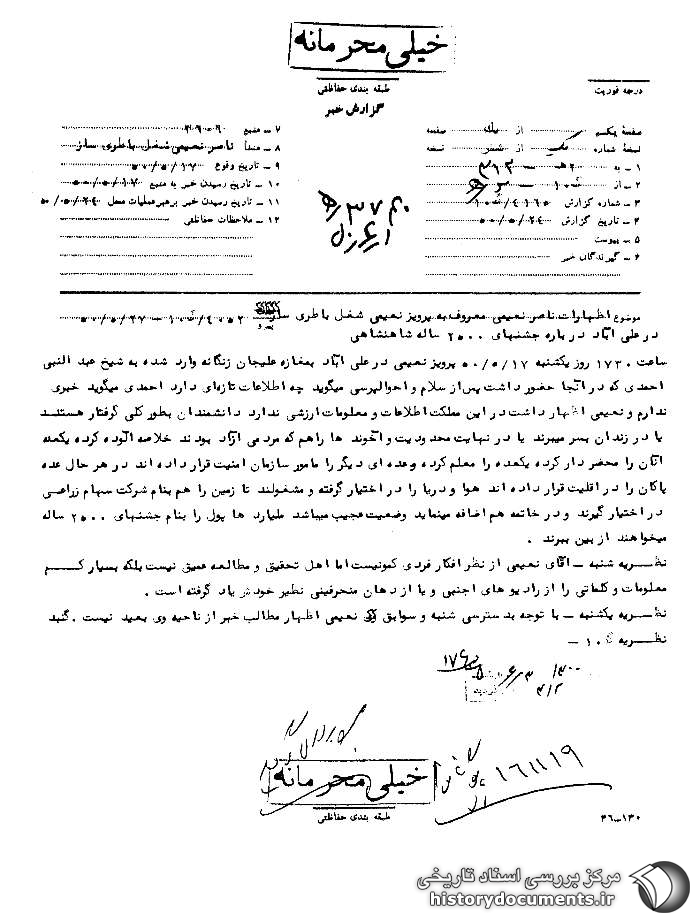 خیلی محرمانه
طبقه بندی حفاظتی
درجه فوریت
گزارش خبر
صفحه یکم از یك صفحه
نسخه شماره یک از شش نسخه
۱ ـ به ۲هـ ـ ۳۱۲
۲ ـ از
۳ ـ شماره گزارش ۴۱۶۵/
۴ ـ تاریخ گزارش ۵۰/۵/۲۴
۵ ـ پیوست
۶ ـ گیرندگان خبر
۷ ـ منبع
۸ ـ منشأ ناصر نعیمی شغل باطری ساز
۹ ـ تاریخ وقوع ۵۰/۵/۱۷
۱۰ ـ تاریخ رسیدن خبر به منبع ۵۰/۵/۱۷
۱۱ ـ تاریخ رسیدن خبر برهبر عملیات محل ۵۰/۵/۲۴
۱۲ ـ ملاحظات حفاظتی
موضوع اظهارات ناصر نعیمی معروف به پرویز نعیمی شغل باطری ساز
در علی آباد درباره جشنهای ۲۵۰۰ ساله شاهنشاهی
ساعت ۱۷۳۰ روز یکشنبه ۵۰/۵/۱۷ پرویز نعیمی در علی آباد بمغازه علیجان زنگانه وارد شده به شیخ عبد النبی
احمدی که در آنجا حضور داشت پس از سلام و احوالپرسی میگوید چه اطلاعات تازه‌ای دارد احمدی میگوید خبری
ندارم و نعیمی اظهار داشت در این مملکت اطلاعات و معلومات ارزشی ندارد دانشمندان بطور کلی گرفتار هستند
یا در زندان بسر میبرند یا در نهایت محدودیت و آخوند ها را هم که مردمی آزاد بودند خلاصه آلوده کرده یکعده
آنان را محضر دار کرده یکعده را معلم کرده وعده ای دیگر را مامور سازمان امنیت قرار داده اند در هر حال عده
پاکان را در اقلیت قرار داده اند هوا و دریا را در اختیار گرفته و مشغولند تا زمین را هم بنام شرکت سهام زراعی
در اختیار گیرند و در خاتمه هم اضافه مینماید وضعیت عجیب میباشد ملیارد ها پول را بنام جشنهای ۲۵۰۰ ساله
میخواهند از بین ببرند .
نظـریه شنبه ـ آقای نعیمی از نظر افکار فردی کمونیست اما اهل تحقیق و مطالعه عمیق نیست بلکه بسیار کـــم
معلومات و کلماتی را از رادیو های اجنبی و یا از دهان منحرفینی نظیر خودش یاد گرفته است .
نظـریه یکشنبه ـ با توجه بدسترسی شنبه و سوابق نعیمی اظهار مطالب خبر از ناحیه وی بعید نیست . گنبد
نظـریه ۱۰ ـ
خیلی محرمانه
۱۶۱۱۱۹
طبقه بندی حفاظتی
۳۶-۱۳۰
مرکز بررسی اسناد تاریخی
historydocuments.ir